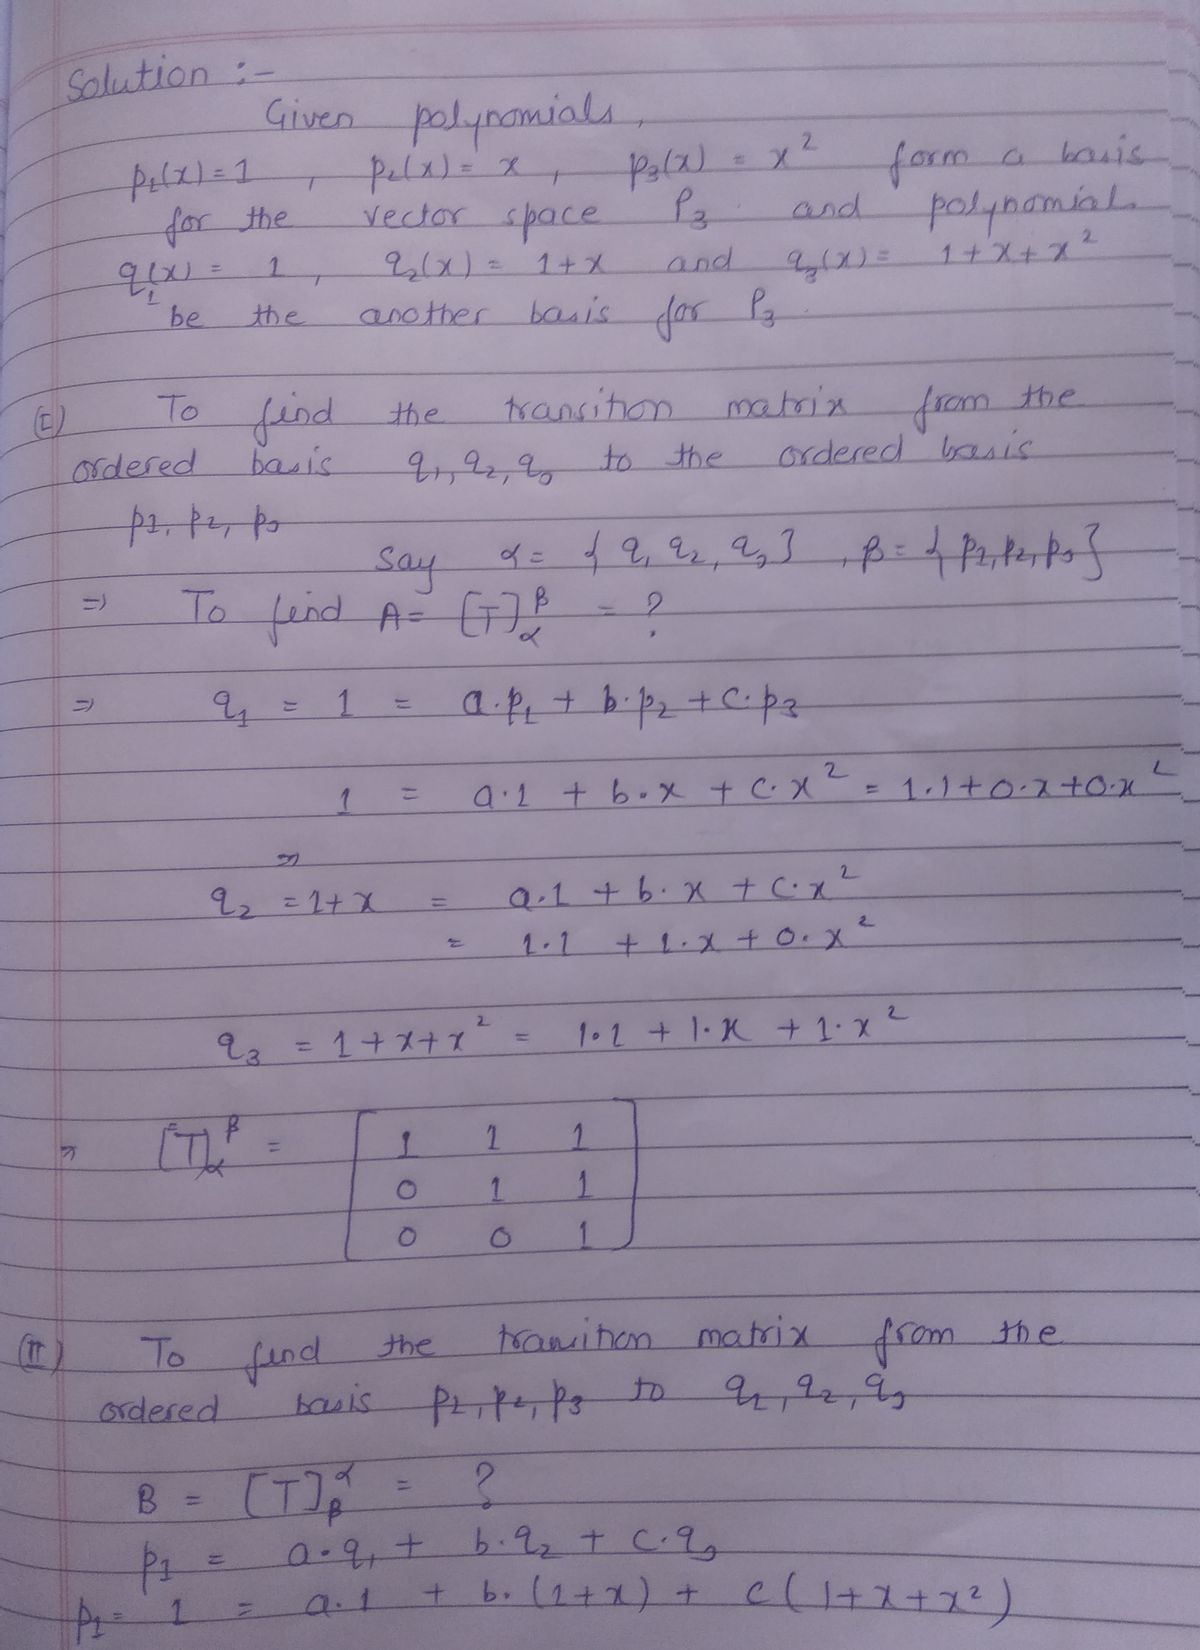 Solution :-
Given polynomials,
p₁(x) = 1 , p₂(x) = x , p₃(x) = x² form a basis
for the vector space P₃ and polynomial
q₁(x) = 1 , q₂(x) = 1+x and q₃(x) = 1+x+x²
be the another basis for P₃.
(I) To find the transition matrix from the
ordered basis q₁, q₂, q₃ to the ordered basis
p₁, p₂, p₃
Say α = { q₁ q₂, q₃ } , β = { p₁, p₂, p₃ }
⇒ To find A = [T]_α^β = ?
⇒ q₁ = 1 = a·p₁ + b·p₂ + c·p₃
1 = a·1 + b·x + c·x² = 1·1+0·x+0·x²
⇒
q₂ = 1+x = a·1 + b·x + c·x²
= 1·1 + 1·x + 0·x²
q₃ = 1+x+x² = 1·1 + 1·x + 1·x²
⇒ [T]_α^β = [ 1 1 1
0 1 1
0 0 1 ]
(II) To find the transition matrix from the
ordered basis p₁, p₂, p₃ to q₁, q₂, q₃
B = [T]_β^α = ?
p₁ = a·q₁ + b·q₂ + c·q₃
p₁ = 1 = a·1 + b·(1+x) + c(1+x+x²)